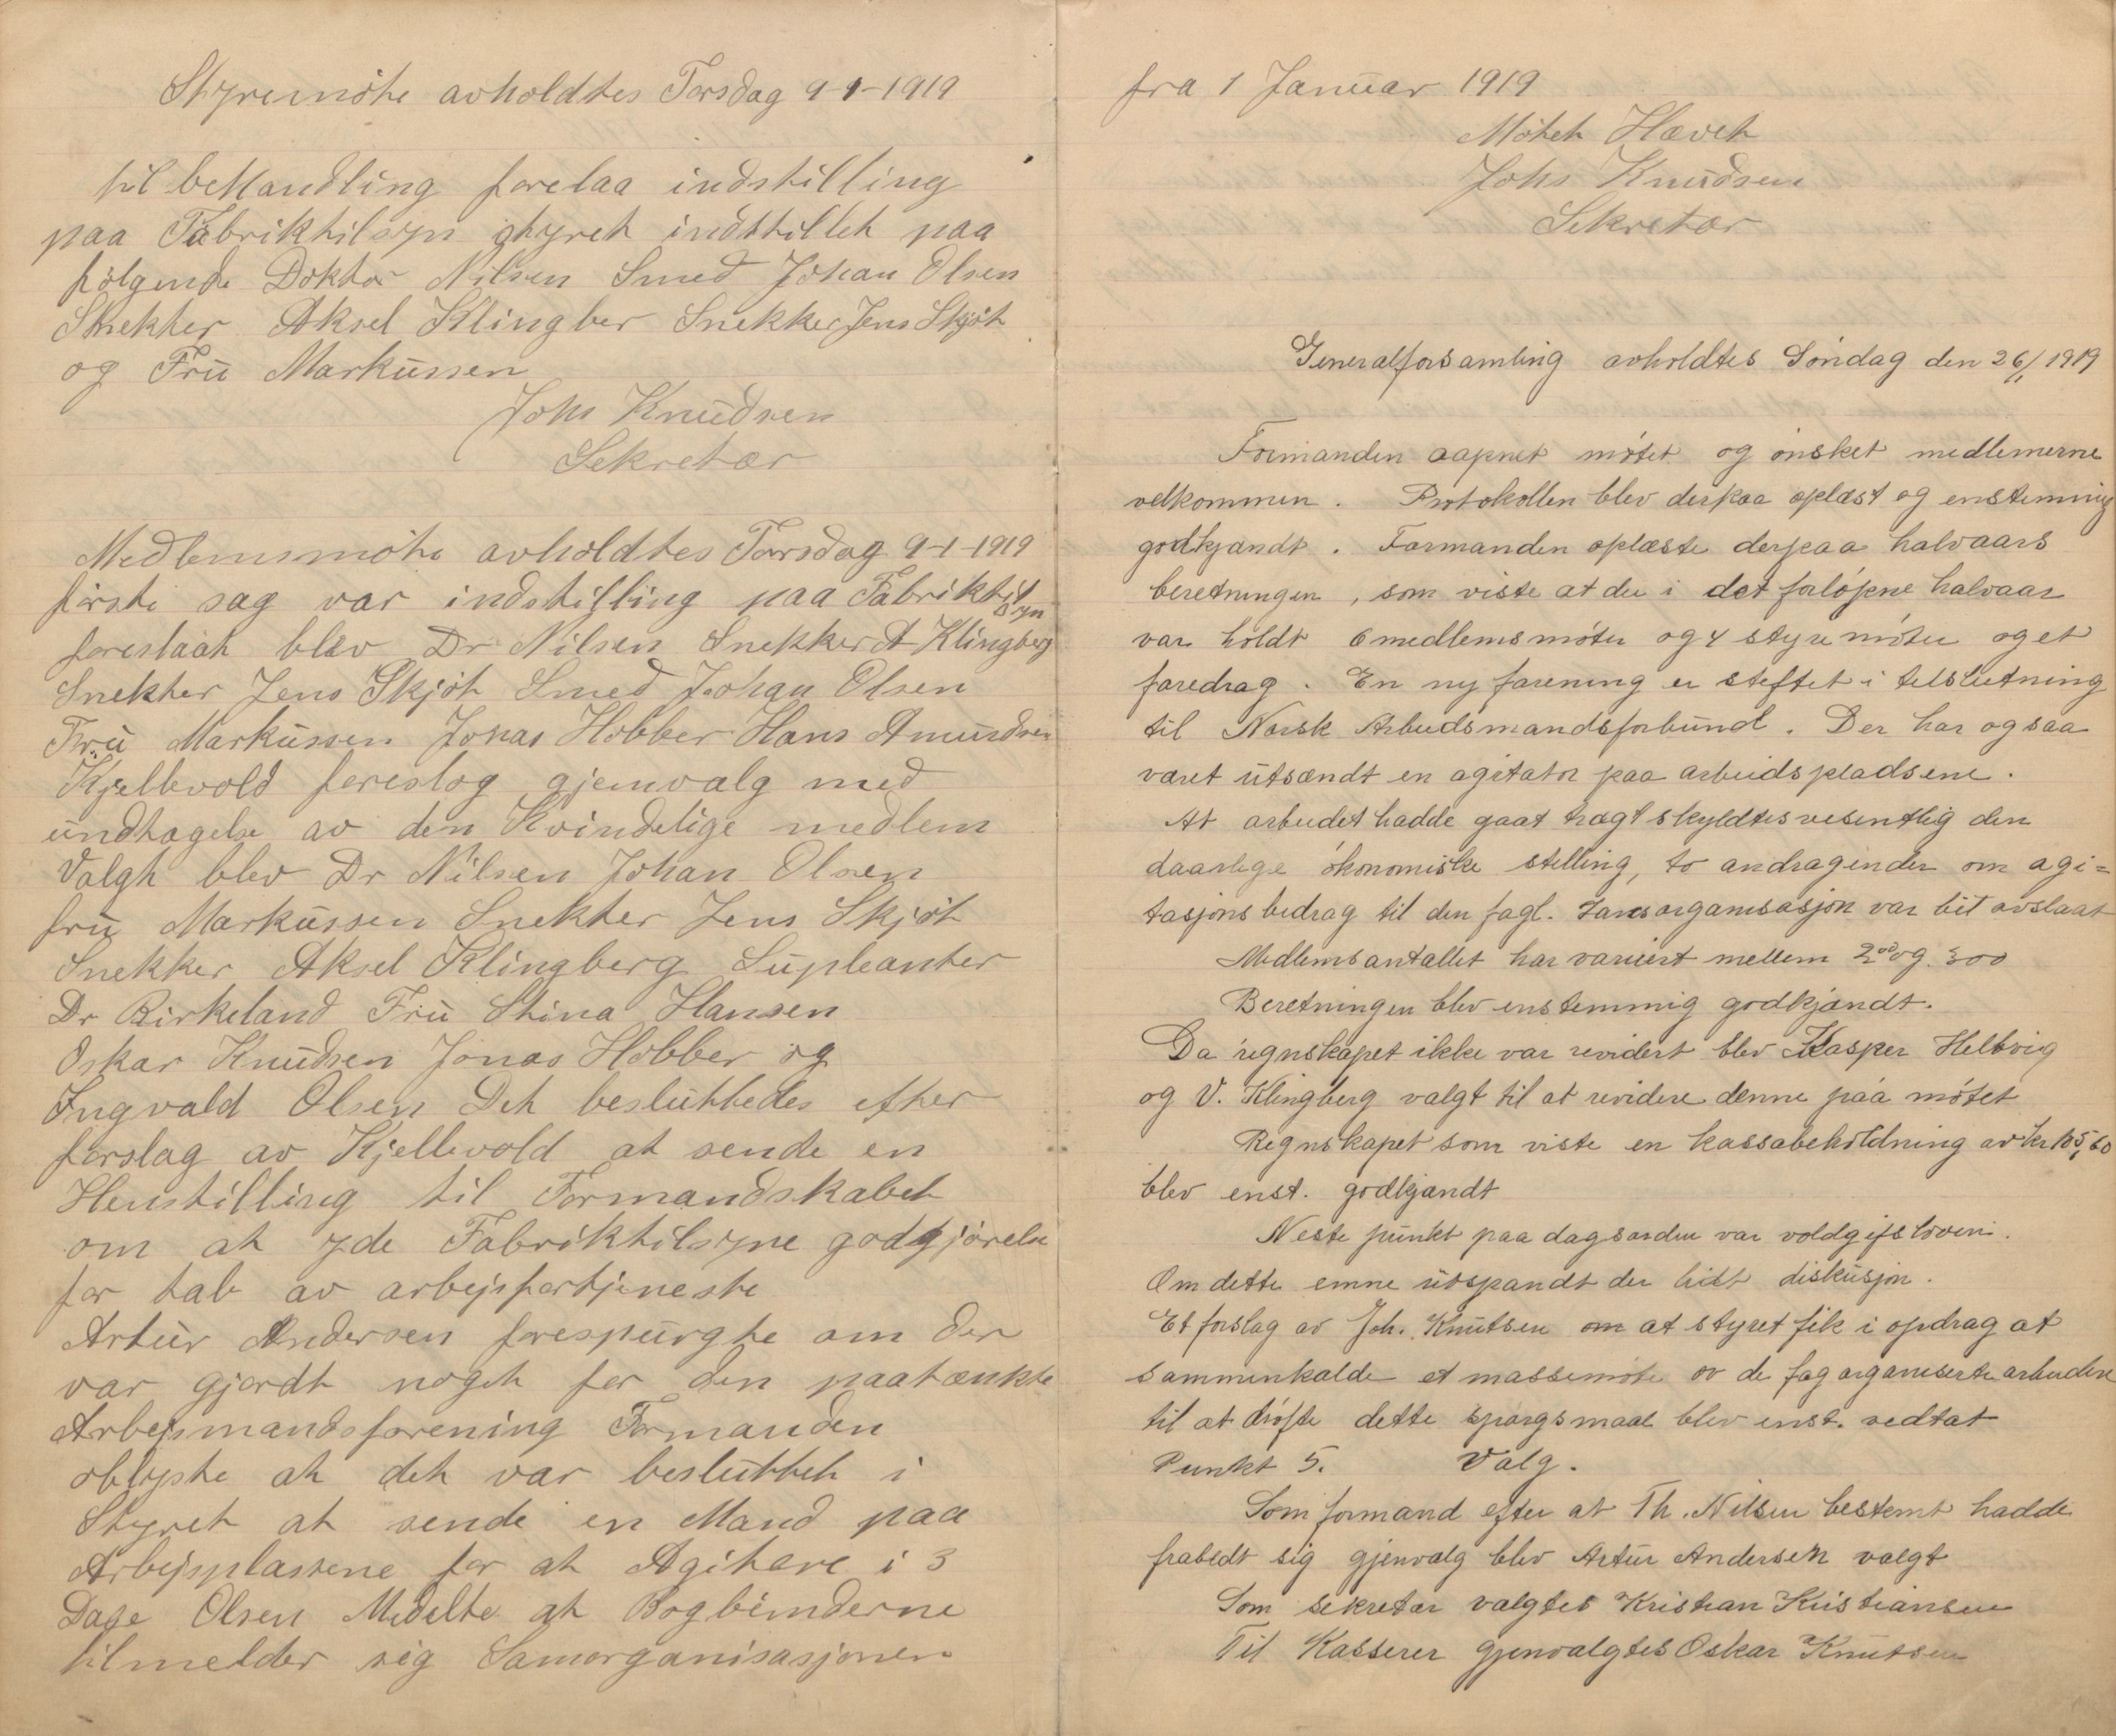 Styremöte avholdtes Torsdag 9-1-1919
til beHandling forelaa indstilling
paa Fabriktilsyn styret indstillet paa
følgende Doktor Nilsen Smed Johan Olsen
Snekker Aksel Klingber Snekker Jens Skjöt
og Frü Markussen
Johs Knudsen
Sekretær
Medlemsmöte avholdtes Torsdag 9-1-1919
förste sag var indstilling paa Fabriktil
syn
foreslaat blev Dr Nilsen Snekker A Klingberg
Snekker Jens Skjöt Smed Johan Olsen
Frü Markussen Jonas Hobber Hans Amundsen
Kjellevold foreslog gjenvalg med
undtagelse av den Kvindelige medlem
Valgt blev Dr Nilsen Johan Olsen
frü Markussen Snekker Jens Skjöt
Snekker Aksel Klingberg Supleanter
Dr Birkeland Frü Stina Hansen
Oskar Knudsen Jonas Hobber og
Ingvald Olsen Det besluttedes efter
forslag av Kjellevold at sende en
Henstilling til Formandskabet
om at yde Fabriktilsyne godtgjörelse
for tab av arbejsfortjeneste
Artur Andersen forespurgte om der
var gjordt noget for den paatænkte
Arbejsmandsforening Formanden
oblyste at det var besluttet i
Styret at sende en Mand paa
Arbejsplassene for at Agitere i 3
Dage Olsen Medelte at Bogbinderne
tilmelder sig Samorganisasjonen
fra 1 Januar 1919
Mötet Hævet
Johs Knudsen
Sekretær
Generalforsamling avholdtes Söndag den 26/1 1919
Formanden aapnet mötet og önsket medlemerne
velkommen. Protokollen blev derpaa oplæst og enstemmig
godkjandt. Formanden oplæste derpaa halvaars
beretningen, som viste at der i det forløpne halvaar
var holdt 6 medlemsmöter og 4 styremöter og et
foredrag. En ny forening er stiftet i tilslutning
til Norsk Arbeidsmandsforbund. Der har ogsaa
været utsændt en agitator paa arbeidspladsene.
At arbeidet hadde gaat trægt skyldtes vesentlig den
daarlige ökonomiske stilling, to andragender om agi=
tasjonsbedrag til den fagl. Landsorganisasjon var blit avslaat
Medlemsantallet har variert mellem 200 og 300
Beretningen blev enstemmig godkjandt.
Da regnskapet ikke var revidert blev Kasper Helbvig
og V. Klingberg valgt til at revidere denne paa mötet
Regnskapet som viste en kassabeholdning av kr 105,60
blev enst. godkjandt
Neste punkt paa dagsorden var voldgifsloven.
Om dette emne utspandt der lidt diskusjon.
Et forslag av Joh. Knutsen om at styret fik i opdrag at
sammenkalde et massemöte av de fagorganiserte arbeidere
til at dröfte dette spørgsmaal blev enst. vedtat
Punkt 5. Valg.
Som formand efter at Th. Nilsen bestemt hadde
frabedt sig gjenvalg blev Artur Andersen valgt
Som sekretær valgtes Kristian Kristiansen
Til Kasserer gjenvalgtes Oskar Knutsen